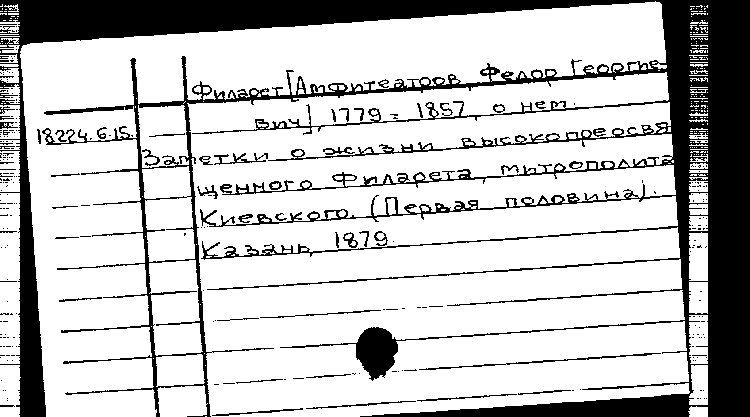 Филарет [Амфитеатров, Федор Георгие-
вич], 1779 - 1857, о нем.
18224.6.15.
Заметки о жизни высокопреосвя
щенного Филарета, митрополита
Киевского. (Первая половина).
Казань, 1879.